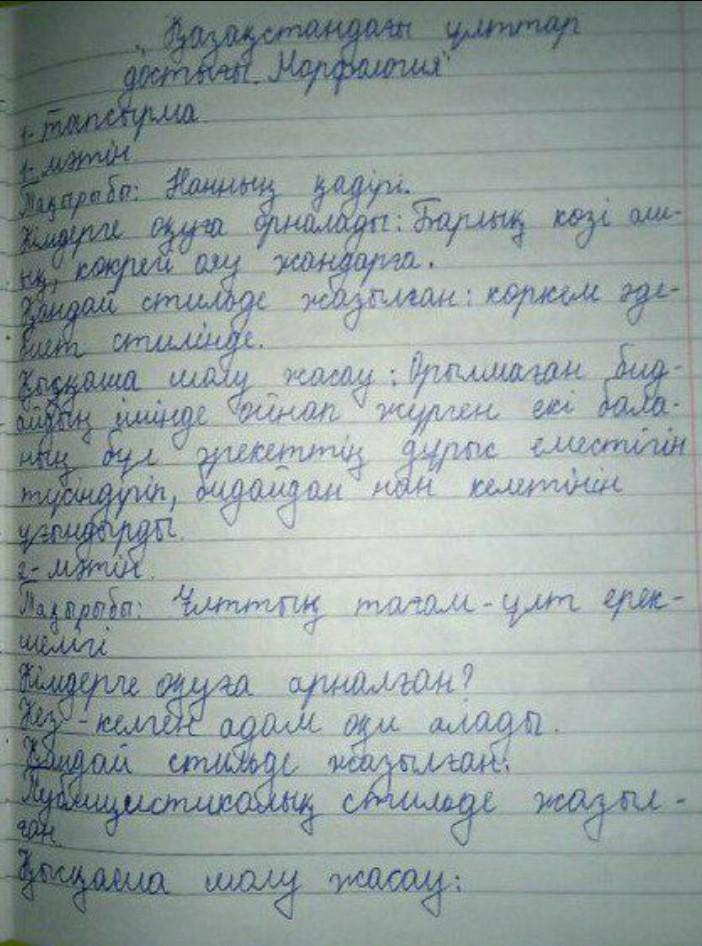 "Қазақстандағы ұлттар
достығы. Морфология"
1-тапсырма
1-мәтін
Тақырыбы: Нанның қадірі.
Кімдерге оқуға орналады: Барлық көзі аш-
ық, көкрей ояу жандарға.
Қандай стильде жазылған: көркем әде-
биет стилінде.
Қысқаша шолу жасау: Орылмаған бид-
айдың ішінде ойнап жүрген екі бала-
ның бұл әрекеттің дұрыс еместігін
түсіндіріп, бидайдан нан келетінін
ұғындырды.
2-мәтін.
Тақырыбы: Ұлттың тағам-ұлт ерек-
шелігі
Кімдерге оқуға арналған?
Кез-келген адам оқи алады.
Қандай стильде жазылған:
Публицистикалық стильде жазыл-
ған
Қысқаша шолу жасау: